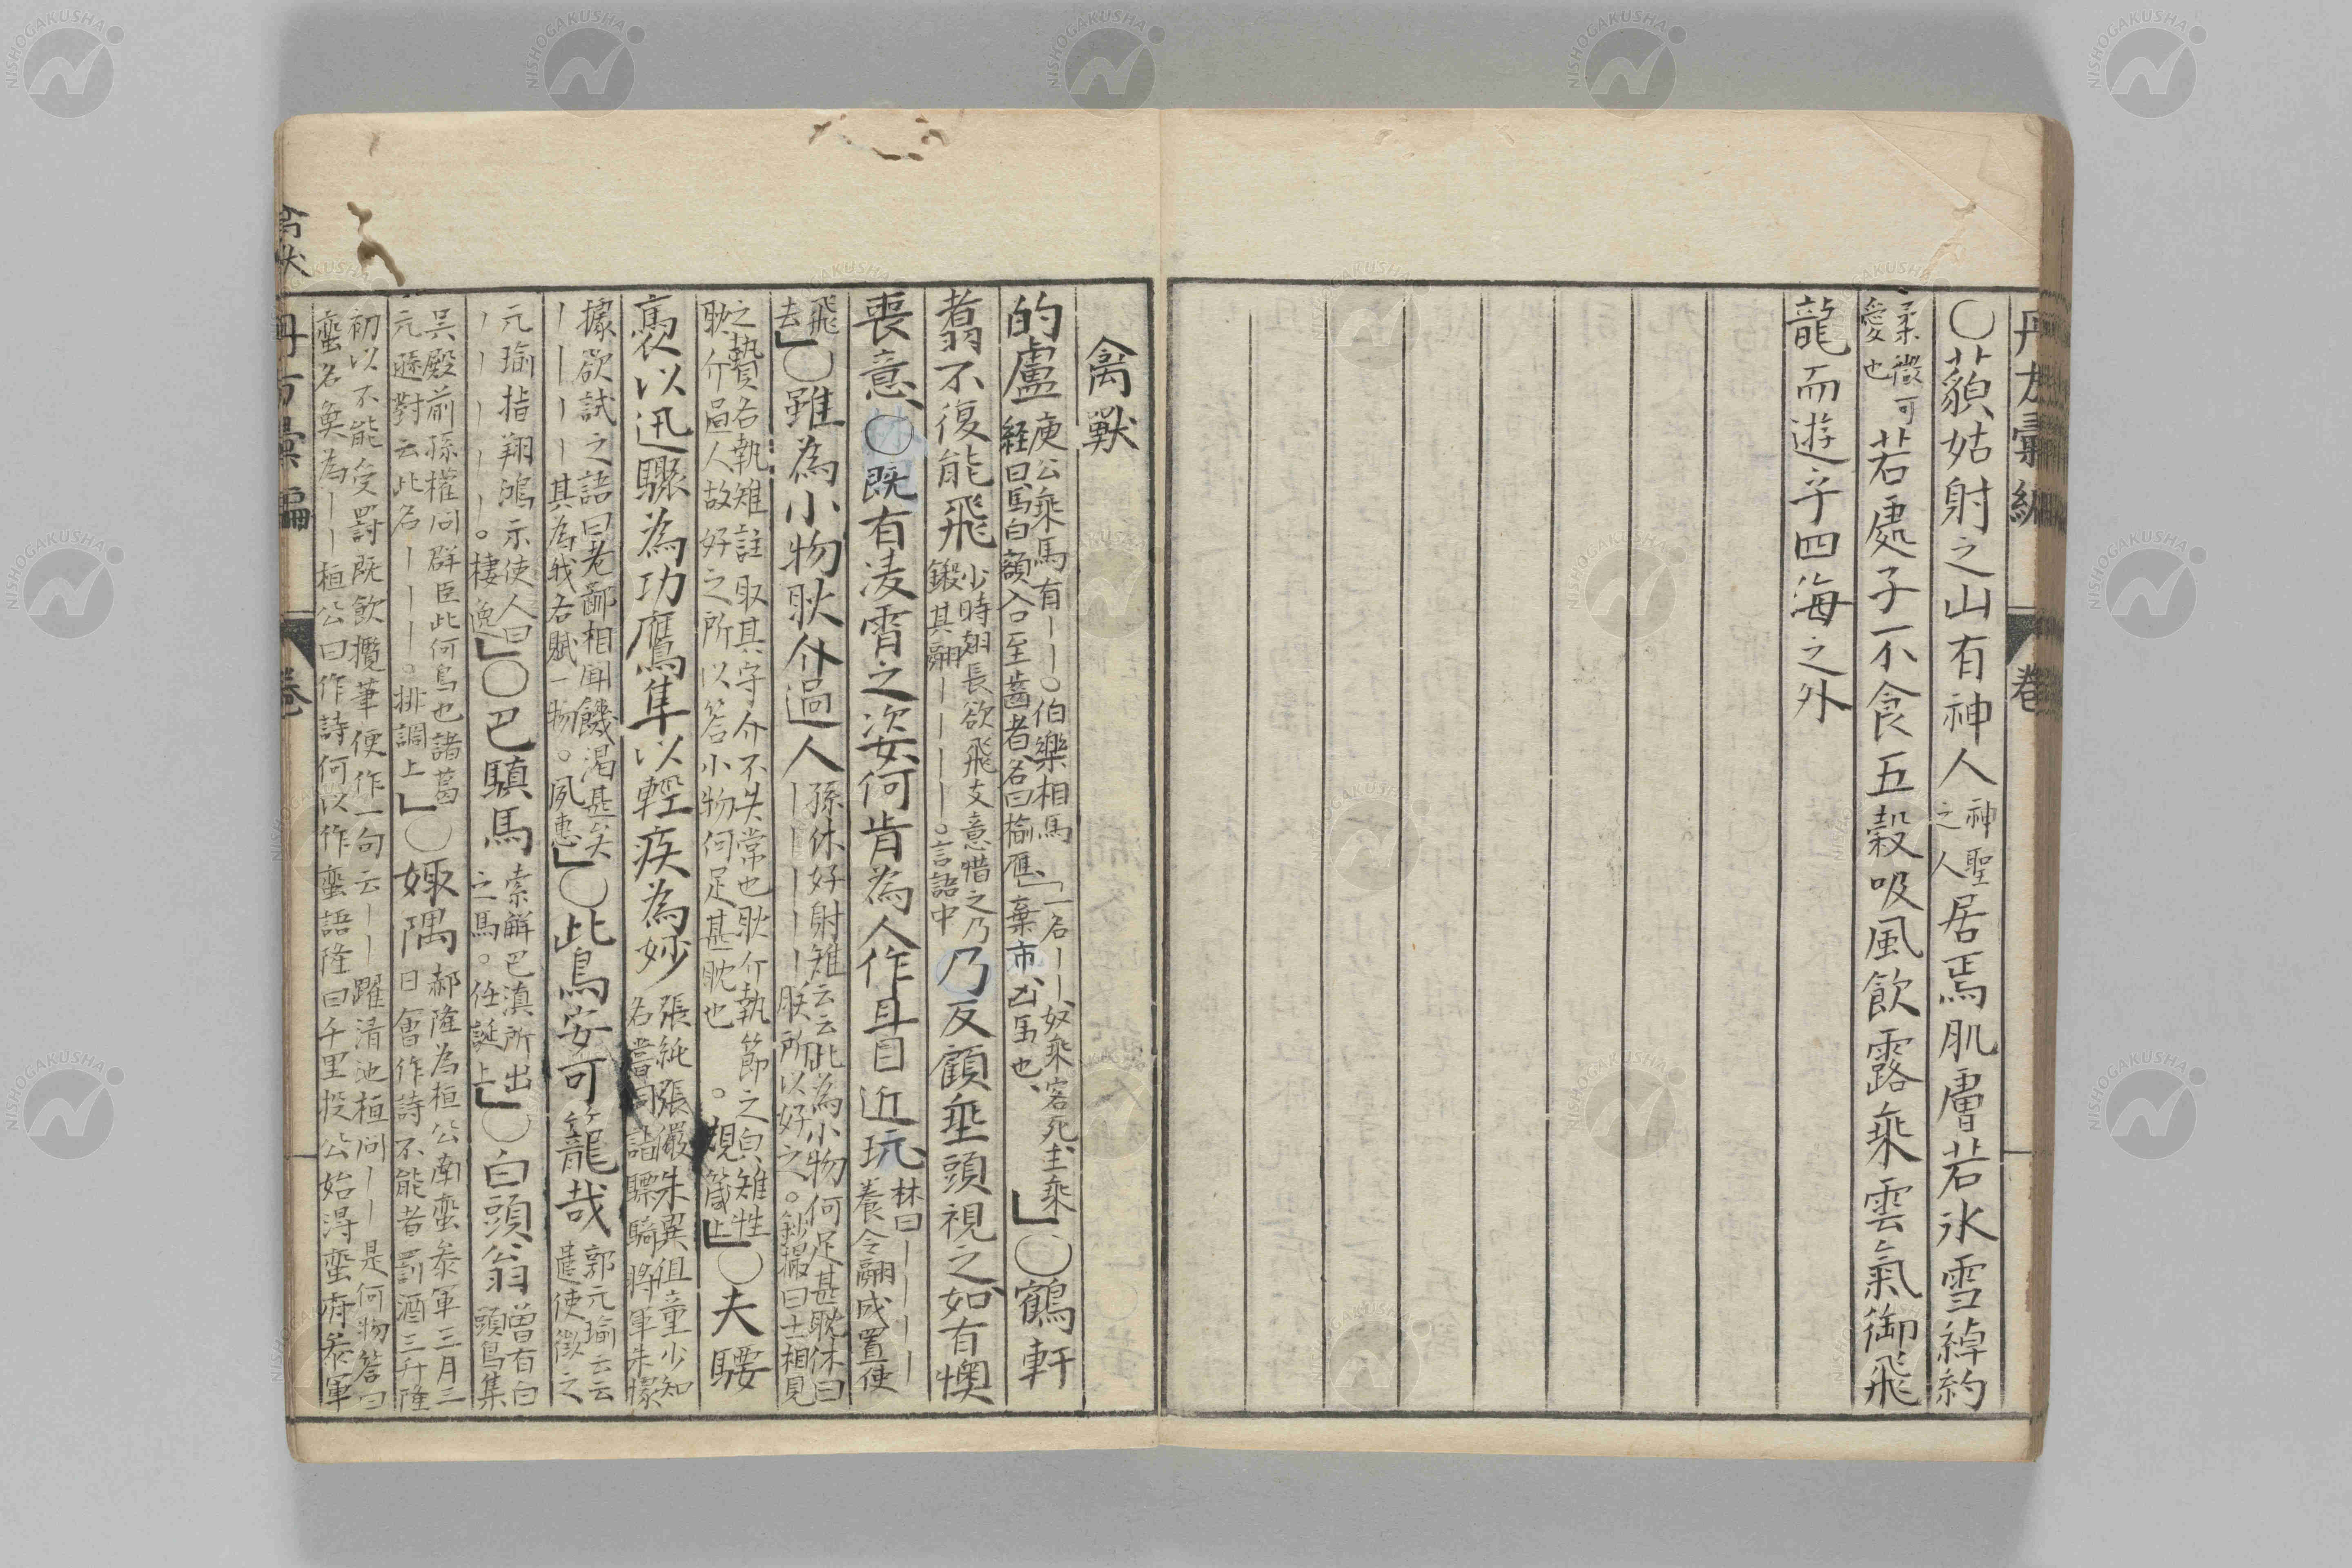 丹方彙編
卷
〇藐姑射之山有神人神聖之人居焉肌膚若氷雪綽約
柔微可愛也若處子不食五穀吸風飲露乘雲氣御飛
龍而遊乎四海之外
禽獸
的盧庾公乘馬有丨丨。伯樂相馬経曰馬白額入口至齒者名曰楡鴈「一名丨丨奴乘客死主乘棄市凶馬也」〇鶴軒
翥不復能飛少時翅長欲飛支意惜之乃鎩其翮丨丨丨丨丨。言語中乃反顧垂頭視之如有懊
喪意〇既有凌霄之姿何肯為人作耳目近玩林曰丨丨丨丨養令翮成置使
飛去」〇雖為小物耿介過人孫休好射雉云云此為小物何足甚耽休曰丨丨丨丨丨丨朕所以好之。鈔撮曰士相見
之贄右執雉註取其守介不失常也耿介執節之良雉性耿介過人故好之所以答小物何足甚耽也。規箴上」〇夫騕
褭以迅驟為功鷹隼以輕疾為妙張純張儼朱異俱童少知名當同詣驃騎將軍朱據
據欲試之語曰老鄙相聞饑渴甚矣丨丨丨丨其為我右賦一物。夙惠」〇此鳥安可籠哉郭元瑜云云遣使徴之
元瑜指翔鴻示使人曰丨丨丨丨丨。棲逸」〇巴驥馬索解巴滇所出之馬。任誕上」〇白頭翁曽有白頭鳥集
呉殿前孫權问群臣此何鳥也諸葛元遜對云此名丨丨丨。排調上」〇娵隅郝隆為桓公南蛮参軍三月三日會作詩不能者罰酒三升隆
初以不能受罰既飲攬筆便作一句云丨丨躍清池桓问丨丨是何物答曰蛮名魚為丨丨桓公曰作詩何以作蛮語隆曰千里投公始得蛮府参軍
禽獣
丹方彙編
卷
NISHOGAKUSHA